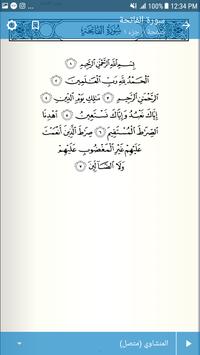 12:34 PM
سورة الفاتحة
سُورَةُ الْفَاتِحَةِ
بِسْمِ اللَّهِ الرَّحْمَٰنِ الرَّحِيمِ ١
الْحَمْدُ لِلَّهِ رَبِّ الْعَالَمِينَ ٢
الرَّحْمَٰنِ الرَّحِيمِ ٣ مَالِكِ يَوْمِ الدِّينِ ٤
إِيَّاكَ نَعْبُدُ وَإِيَّاكَ نَسْتَعِينُ ٥ اهْدِنَا
الصِّرَاطَ الْمُسْتَقِيمَ ٦ صِرَاطَ الَّذِينَ أَنْعَمْتَ
عَلَيْهِمْ غَيْرِ الْمَغْضُوبِ عَلَيْهِمْ
وَلَا الضَّالِّينَ ٧
المنشاوي (متصل)